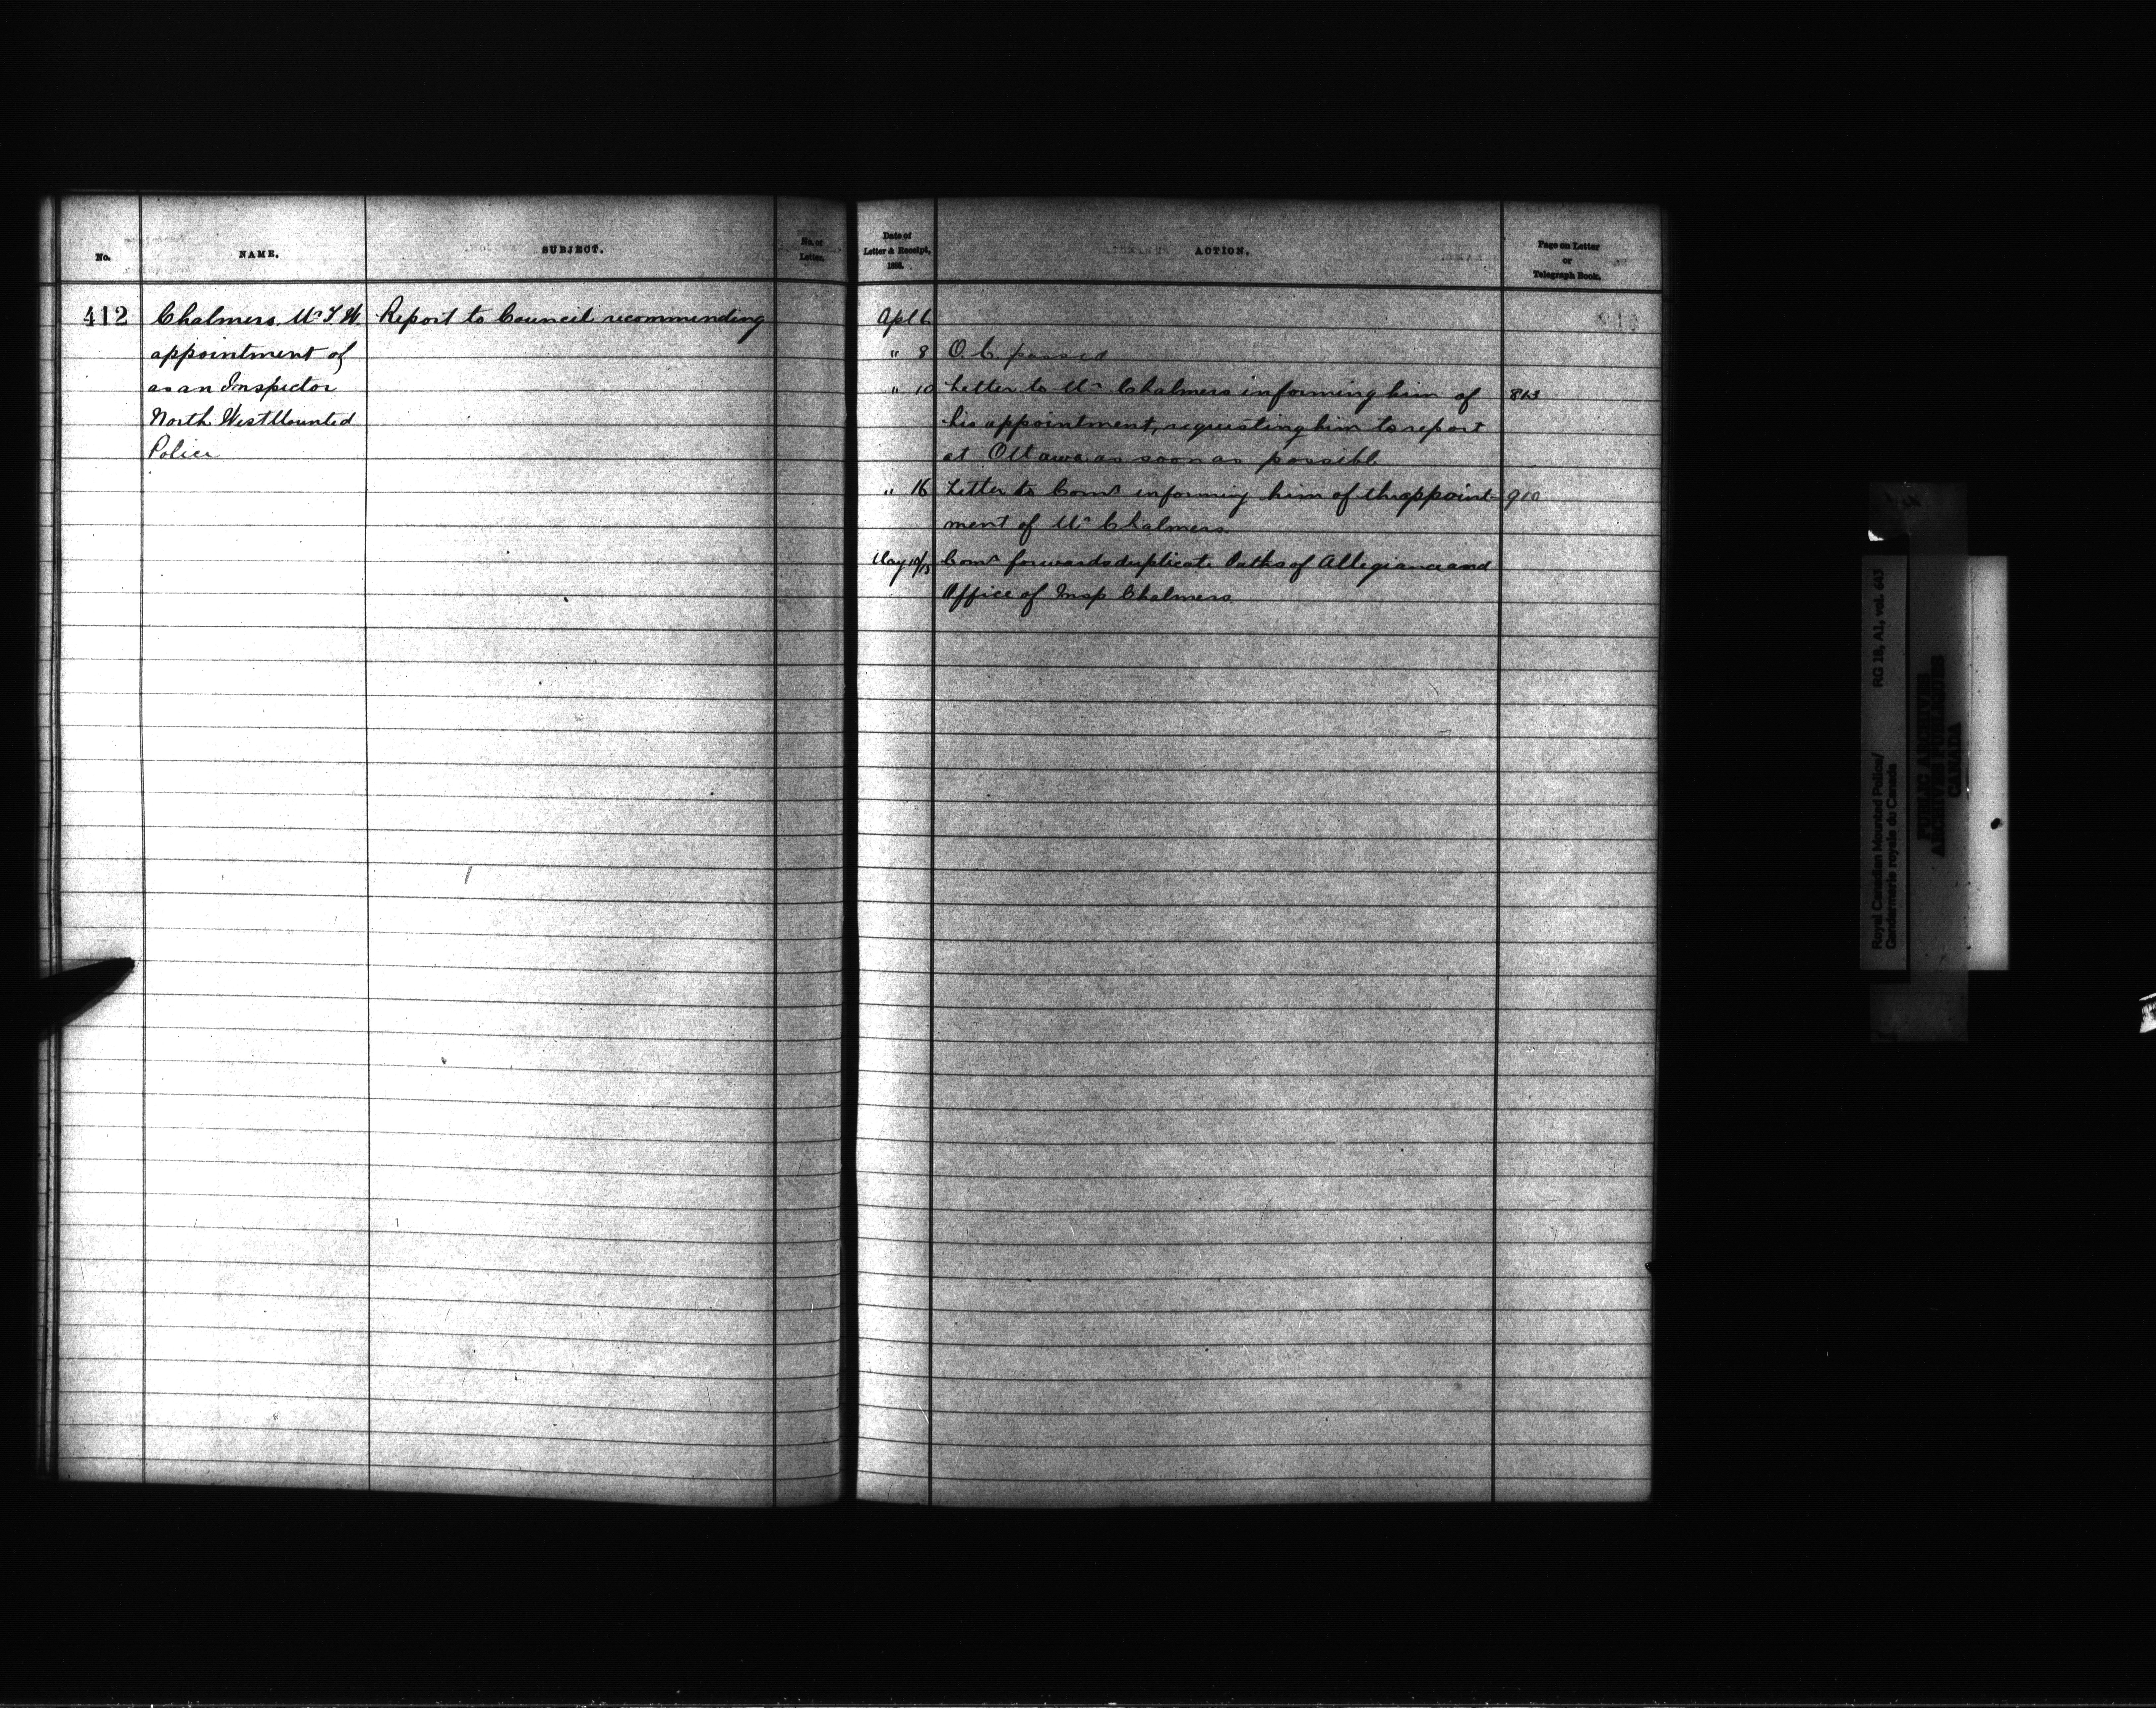 No.
NAME.
SUBJECT.
No. of
Letter.
412
Chalmers. Mr T. W.
appointment of
as an Inspector
North West Mounted
Police
Report to Council recommending
Date of
Letter & Receipt,
188
ACTION.
Page on Letter
or
Telegraph Book.
Apl 6
" 8 O. C. passed
" 10 Letter to Mr Chalmers informing him of 863
his appointment, requesting him to report
at Ottawa as soon as possible
" 16 Letter to Comr informing him of the appoint- 910
ment of Mr Chalmers.
May 10/15 Comr forwards duplicate Oaths of Allegiance and
Office of Insp Chalmers.
Royal Canadian Mounted Police/ RG 18, A1, vol. 643
Gendarmerie royale du Canada
PUBLIC ARCHIVES
ARCHIVES PUBLIQUES
CANADA